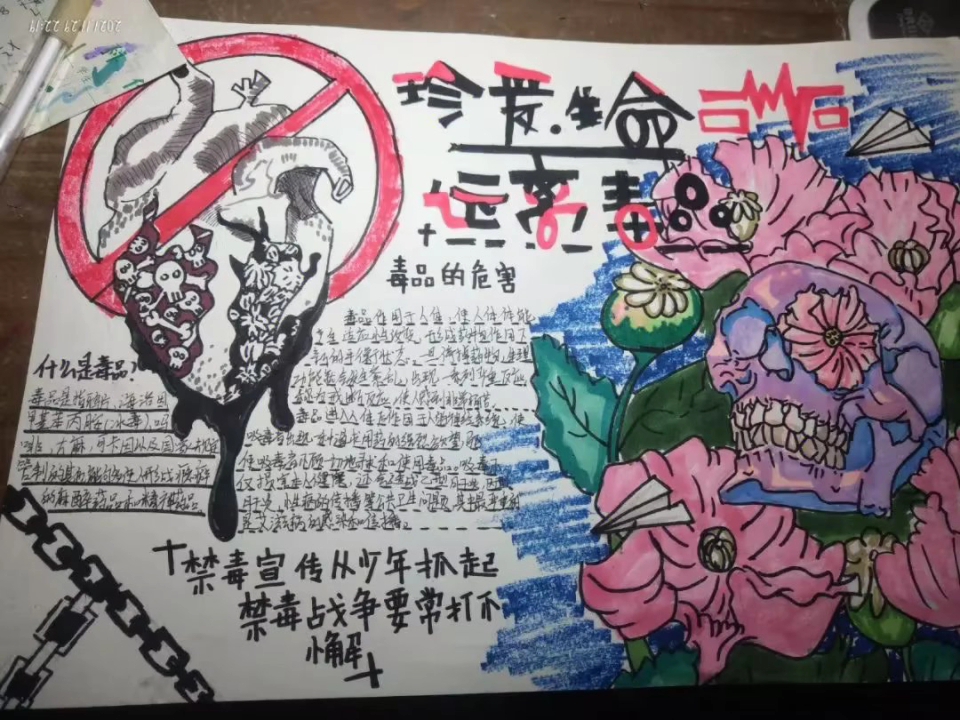 2021/11/29 22:19
珍爱.生命
远离毒品
毒品的危害
毒品作用于人体,使人体体能
产生适应性改变,形成药物作用下
的新的平衡状态。一旦停掉药物,生理
功能就会发生紊乱,出现一系列严重反应,
称为戒断反应,使人感到非常痛苦。
毒品进入人体后作用于人的神经系统,使
吸毒者出现一种渴求用药的强烈欲望,驱
使吸毒者不顾一切地寻求和使用毒品。吸毒不
仅损害人健康,还会造成乙型肝炎、丙型
肝炎、性病的传播等公共卫生问题,其最严重的
是艾滋病的感染和传播。
什么是毒品?
毒品是指鸦片、海洛因
甲基苯丙胺(冰毒)、吗
啡、大麻、可卡因以及国家规定
管制的其它能够使人形成瘾癖
的麻醉药品和精神药品
禁毒宣传从少年抓起
禁毒战争要常打不
懈